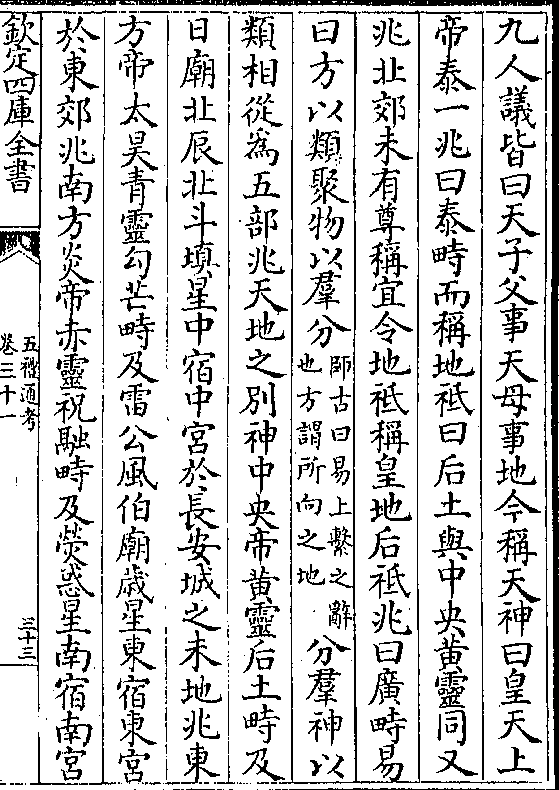 九人議皆曰天子父事天母事地今稱天神曰皇天上
帝泰一兆曰泰畤而稱地祗曰后土與中央黃靈同又
兆北郊未有尊稱宜令地祗稱皇地后祗兆曰廣畤易
曰方以類聚物以羣分師古曰易上繫之辭也方謂所向之地分羣神以
類相從爲五部兆天地之別神中央帝黃靈后土畤及
日廟北辰北斗填星中宿中宮於長安城之未地兆東
方帝太昊青靈勾芒畤及雷公風伯廟歲星東宿東宮
於東郊兆南方炎帝赤靈祝融畤及熒惑星南宿南宮
欽定四庫全書
五禮通考
卷三十一
三十三